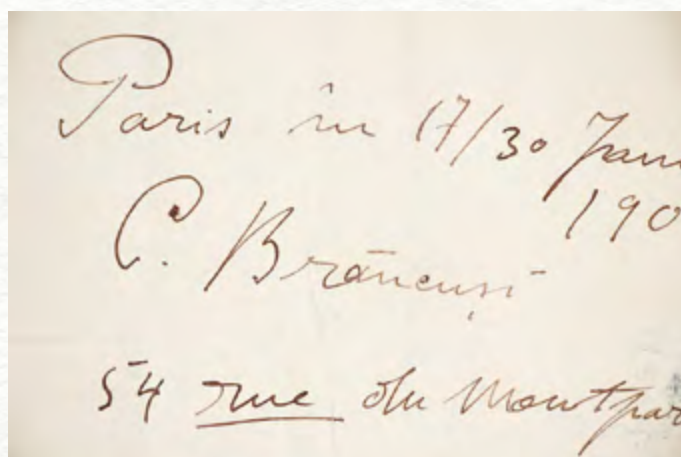 Paris în 17/30 Janu
190
C. Brâncuși
54 rue du Montpar